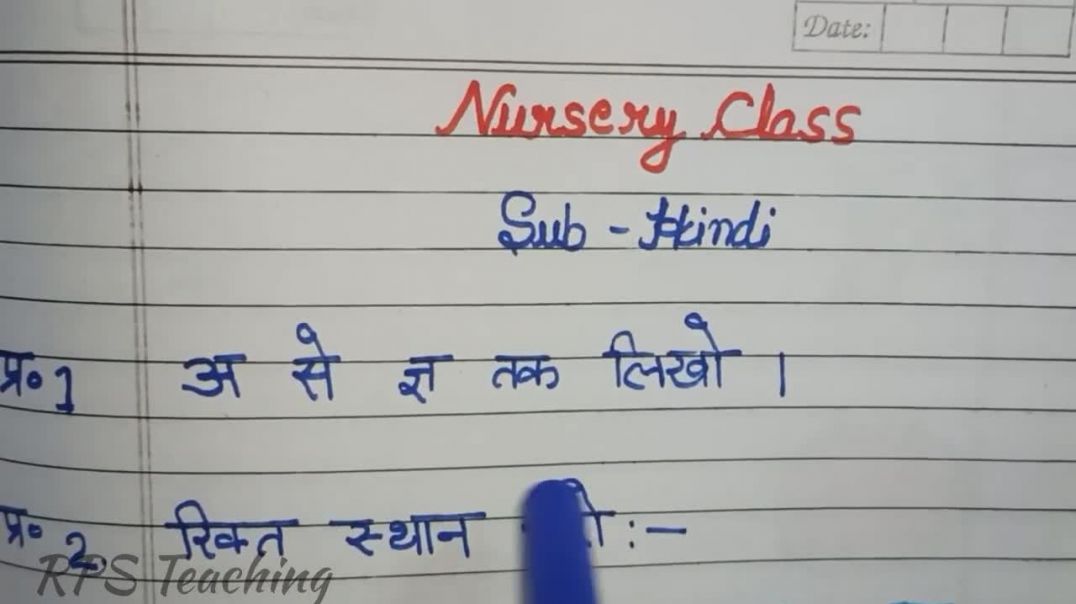 Date:
Nursery Class
Sub - Hindi
प्र॰ 1 अ से ज्ञ तक लिखो ।
प्र॰ 2 रिक्त स्थान :-
RPS Teaching